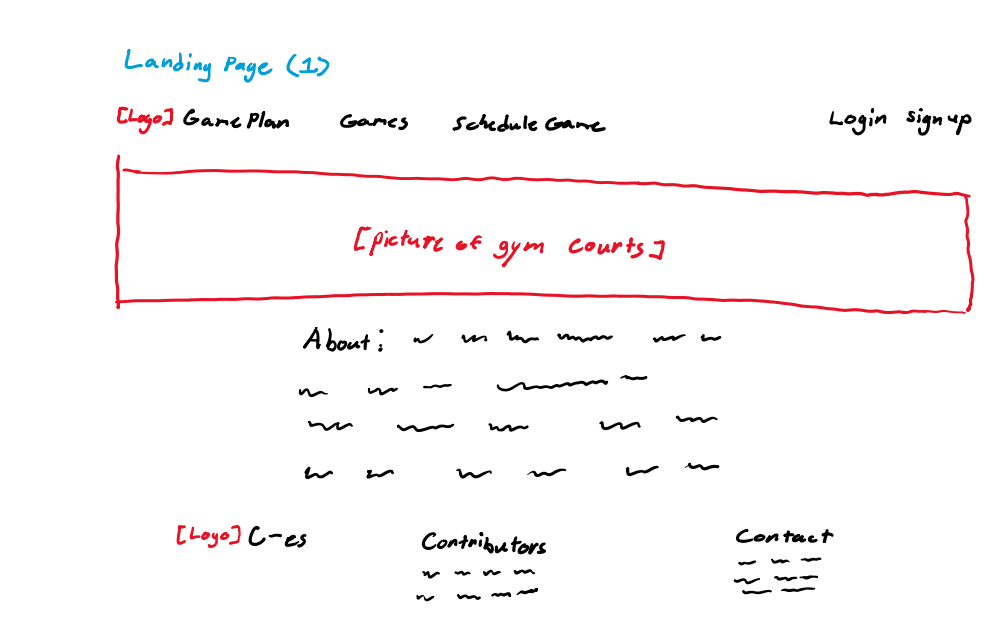 Landing Page (1)
[Logo] Game Plan Games Schedule Game Login sign up
[picture of gym courts]
About:
[Logo] C-es
Contributors
Contact